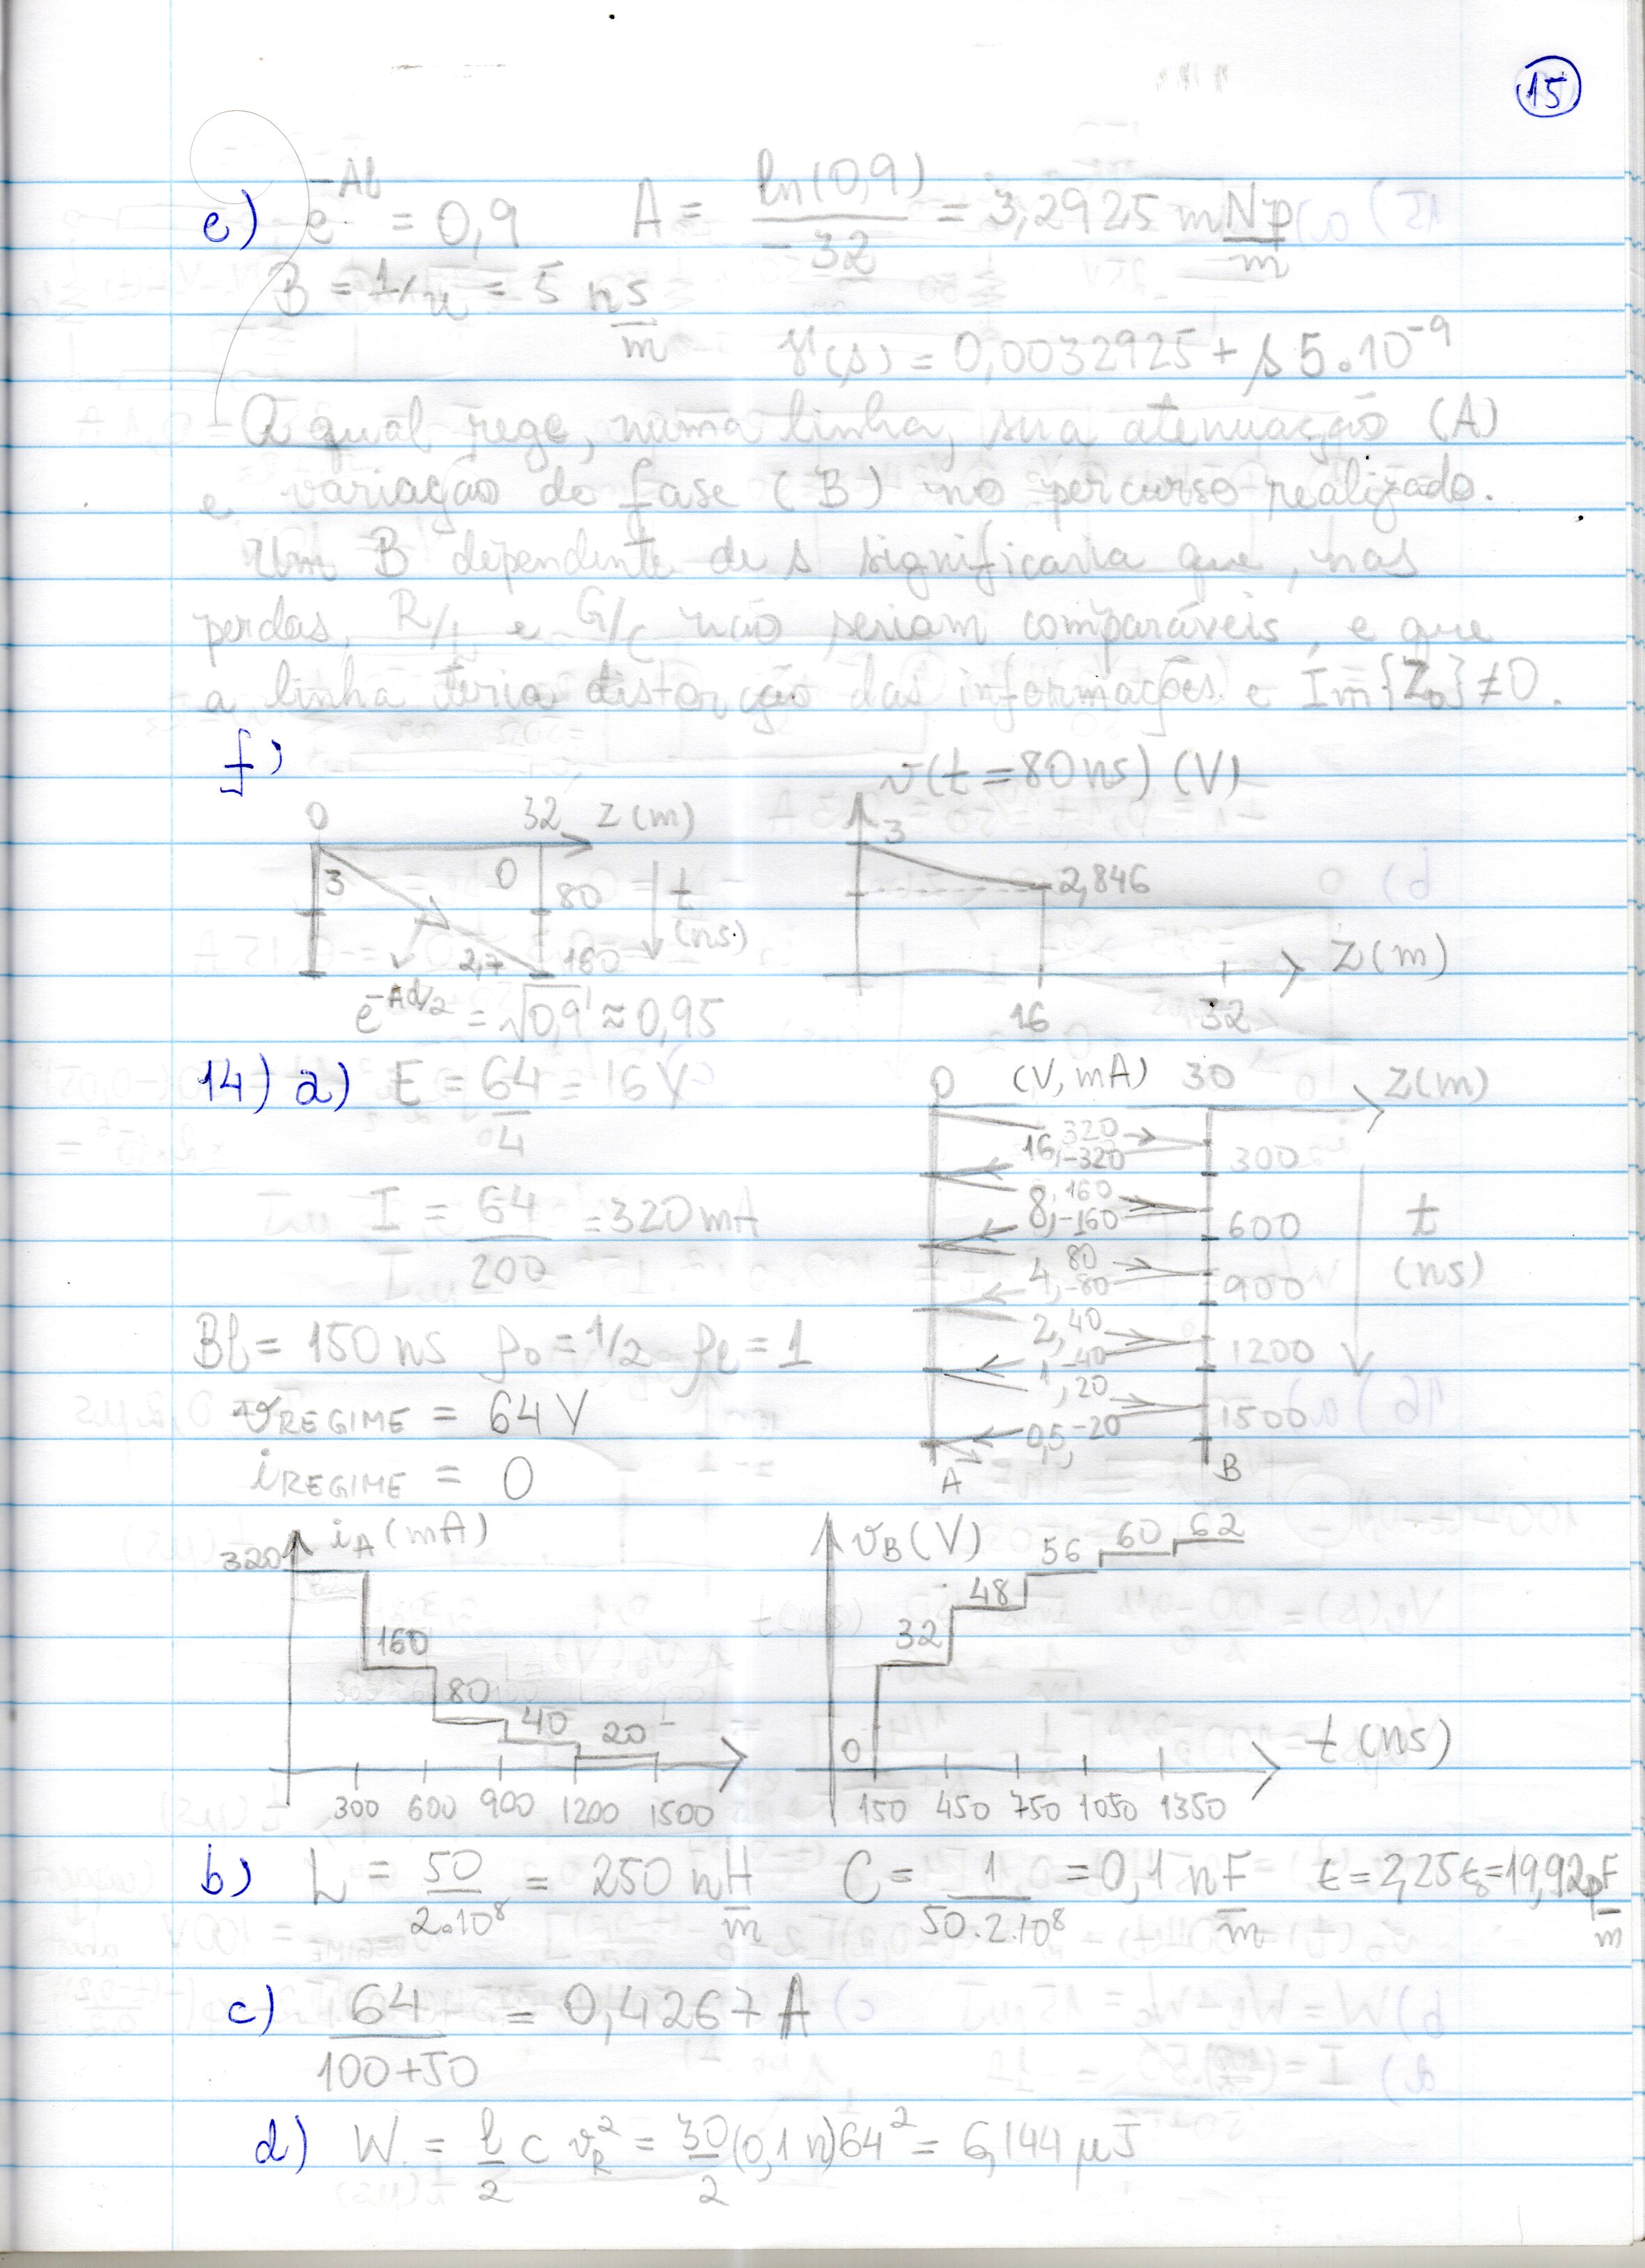 15
e) e^{-Al} = 0,9 A = ln(0,9)/-32 = 3,2925 m Np/m
B = 1/u = 5 ns/m
γ(s) = 0,0032925 + s 5.10^{-9}
A qual rege, numa linha, sua atenuação (A)
e variação de fase (B) no percurso realizado.
Um B dependente de s significaria que, nas
perdas, R/L e G/C não seriam comparáveis, e que
a linha teria distorção das informações e Im{Z₀}≠0.
f)
0 32 Z(m)
3 0 80 t (ns)
2,7 160
e^{-Ad/2} = √0,9 ≈ 0,95
v(t=80ns) (V)
3
2,846
Z(m)
16 32
14) a) E = 64/4 = 16 V
I = 64/200 = 320mA
Bl = 150 ns ρ₀ = 1/2 ρl = 1
vREGIME = 64V
iREGIME = 0
0 (V, mA) 30 Z(m)
16, 320
-320 300
8, 160
-160 600
4, 80
-80 900
2, 40
-40 1200
1, 20
0,5, -20 1500
t (ns)
A B
iA (mA)
320
160
80
40
20
300 600 900 1200 1500
vB (V)
0
32
48
56
60
62
150 450 750 1050 1350
t (ns)
b) L = 50/2.10⁸ = 250 nH/m C = 1/50.2.10⁸ = 0,1 nF/m ε = 2,25ε₀ = 19,92 pF/m
c) 64/100+50 = 0,4267 A
d) W = l/2 C vR² = 30/2 (0,1 n) 64² = 6,144 μJ